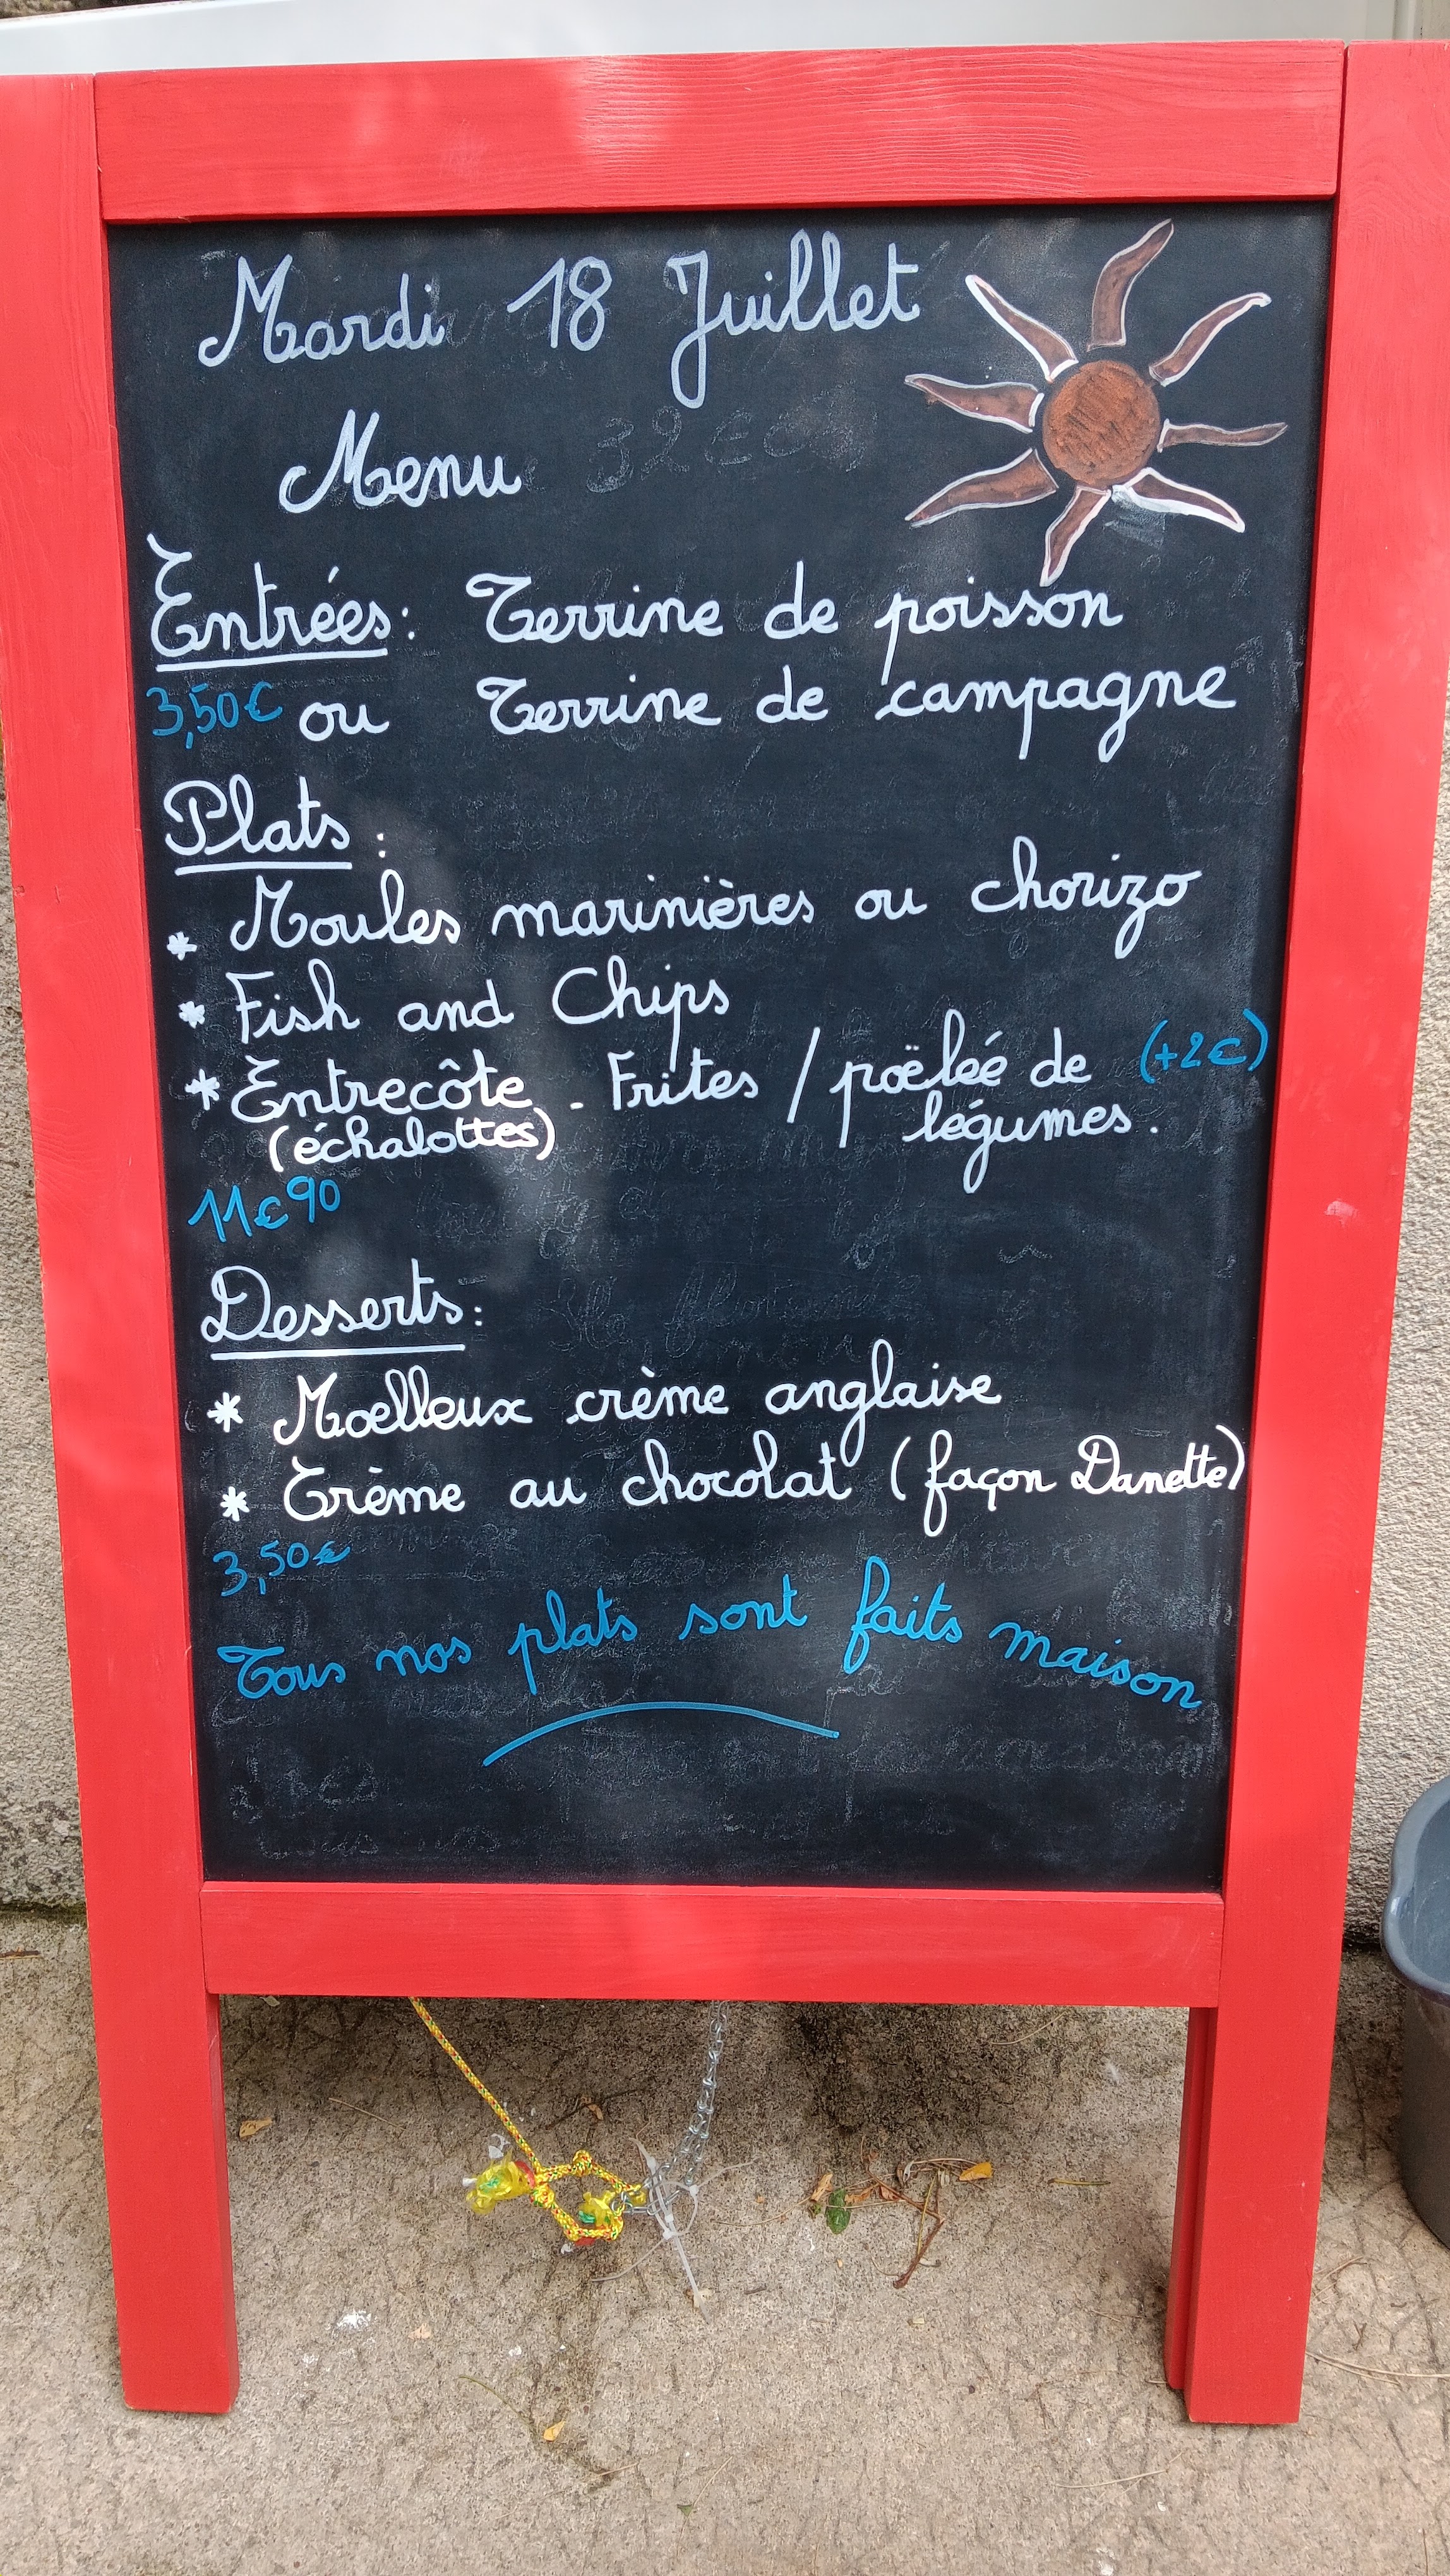 Mardi 18 Juillet
Menu
Entrées: Terrine de poisson
3,50€ ou Terrine de campagne
Plats:
* Moules marinières ou chorizo
* Fish and Chips
* Entrecôte - Frites / poëlée de (+2€)
(échalottes) légumes.
11€90
Desserts:
* Moelleux crème anglaise
* Crème au chocolat (façon Danette)
3,50€
Tous nos plats sont faits maison